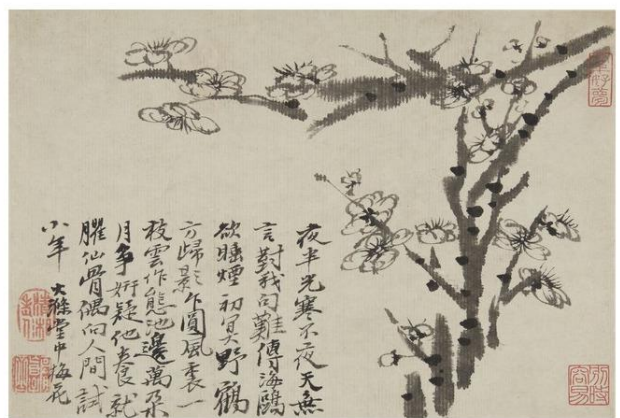 夜半光寒不夜天無
言對我句難傳海鷗
欲睡煙初冥野鶴
方歸影乍圓風裏一
枝雲作態池邊萬朵
月爭妍疑他食就
臞仙骨偶向人間試
小年 大滌堂中梅花